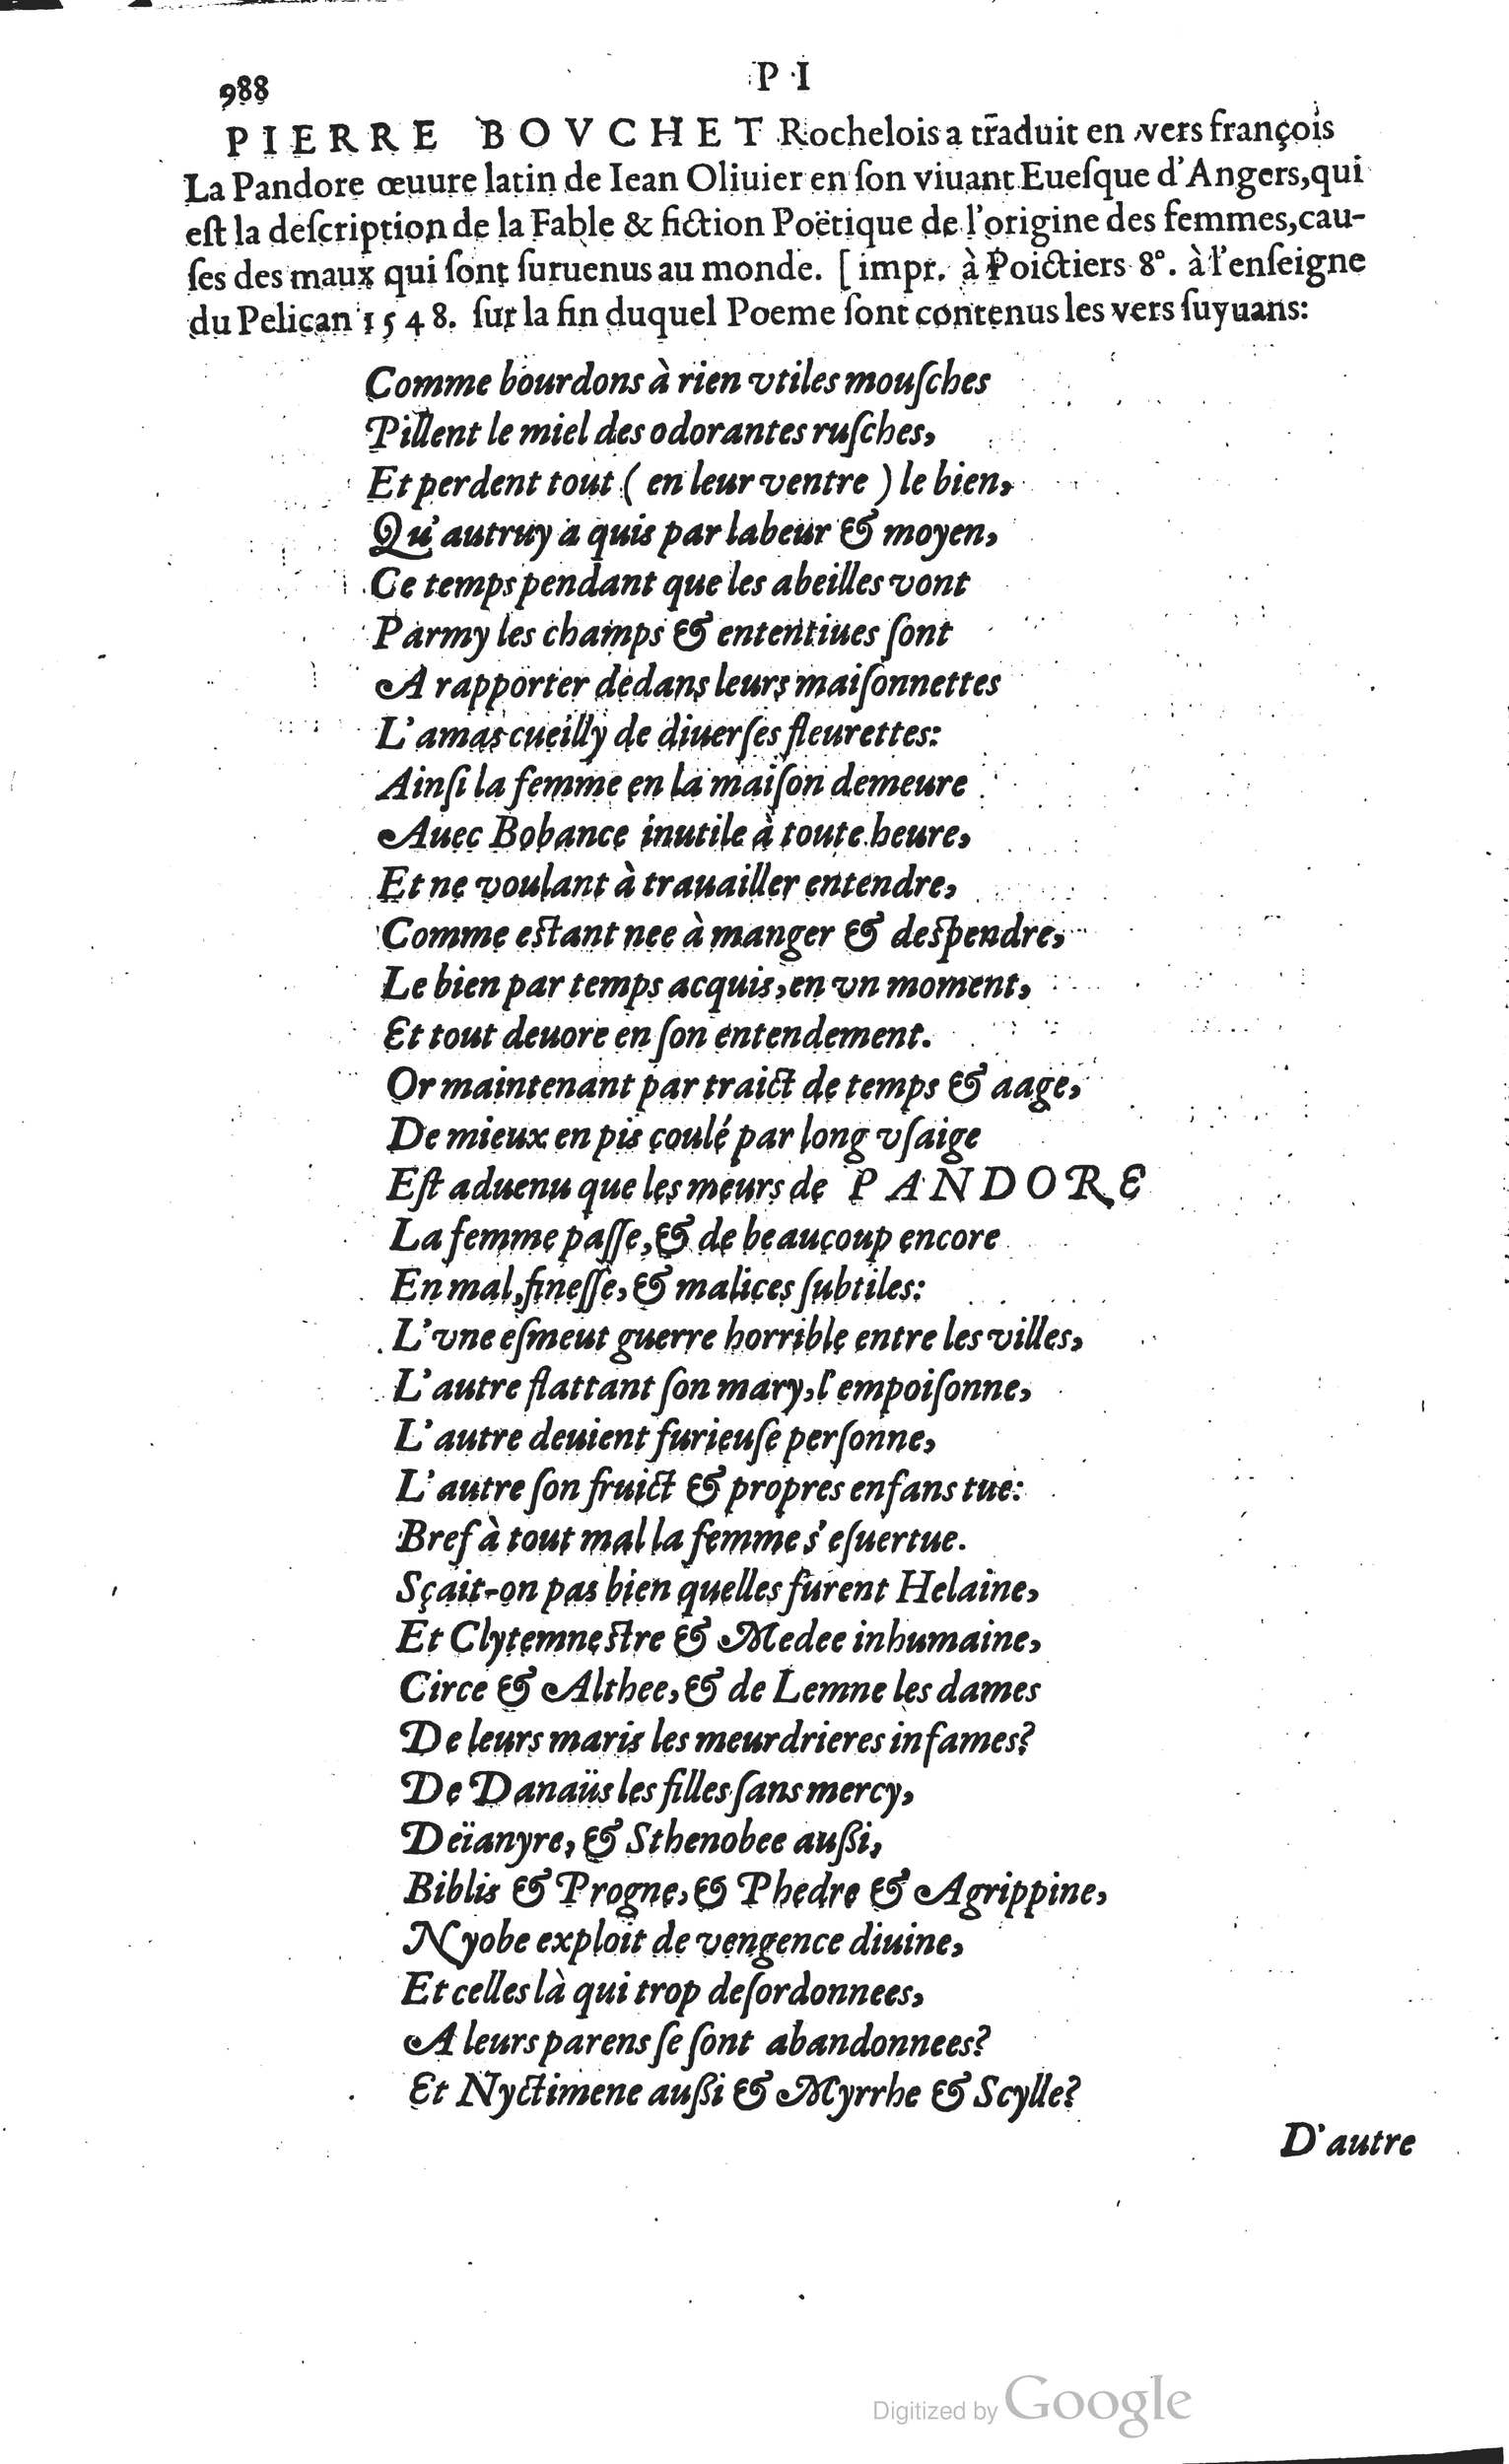 988
P I
PIERRE BOVCHET Rochelois a traduit en vers françois
La Pandore œuure latin de Iean Oliuier en ſon viuant Eueſque d'Angers, qui
eſt la deſcription de la Fable & fiction Poëtique de l'origine des femmes, cau-
ſes des maux qui ſont ſuruenus au monde. [impr. à Poictiers 8°. à l'enſeigne
du Pelican 1548. ſur la fin duquel Poeme ſont contenus les vers ſuyuans:
Comme bourdons à rien vtiles mouſches
Pillent le miel des odorantes ruſches,
Et perdent tout (en leur ventre) le bien,
Qu'autruy a quis par labeur & moyen,
Ce temps pendant que les abeilles vont
Parmy les champs & ententiues ſont
A rapporter dedans leurs maiſonnettes
L'amas cueilly de diuerſes fleurettes:
Ainſi la femme en la maiſon demeure
Auec Bobance inutile à toute heure,
Et ne voulant à trauailler entendre,
Comme eſtant nee à manger & deſpendre,
Le bien par temps acquis, en vn moment,
Et tout deuore en ſon entendement.
Or maintenant par traict de temps & aage,
De mieux en pis coulé par long vſaige
Eſt aduenu que les meurs de PANDORE
La femme paſſe, & de beaucoup encore
En mal, fineſſe, & malices ſubtiles:
L'vne eſmeut guerre horrible entre les villes,
L'autre flattant ſon mary, l'empoiſonne,
L'autre deuient furieuſe perſonne,
L'autre ſon fruict & propres enfans tue:
Bref à tout mal la femme s'eſuertue.
Sçait-on pas bien quelles furent Helaine,
Et Clytemneſtre & Medee inhumaine,
Circe & Althee, & de Lemne les dames
De leurs maris les meurdrieres infames?
De Danaüs les filles ſans mercy,
Deïanyre, & Sthenobee außi,
Biblis & Progne, & Phedre & Agrippine,
Nyobe exploit de vengence diuine,
Et celles là qui trop deſordonnees,
A leurs parens ſe ſont abandonnees?
Et Nyctimene außi & Myrrhe & Scylle?
D'autre
Digitized by Google